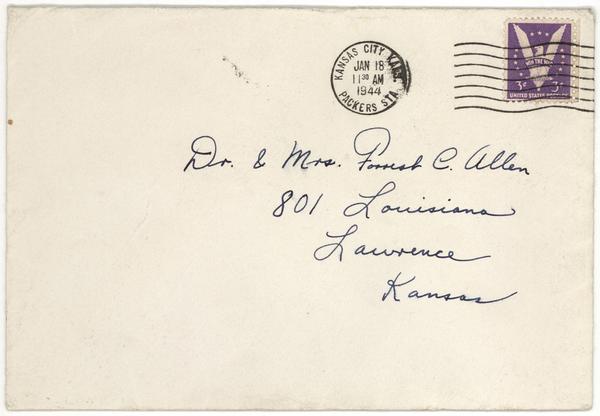 KANSAS CITY KANS.
JAN 18
11 30 AM
1944
PACKERS STA.
WIN THE WAR
3¢ 3¢
UNITED STATES
Dr. & Mrs. Forrest C. Allen
801 Louisiana
Lawrence
Kansas